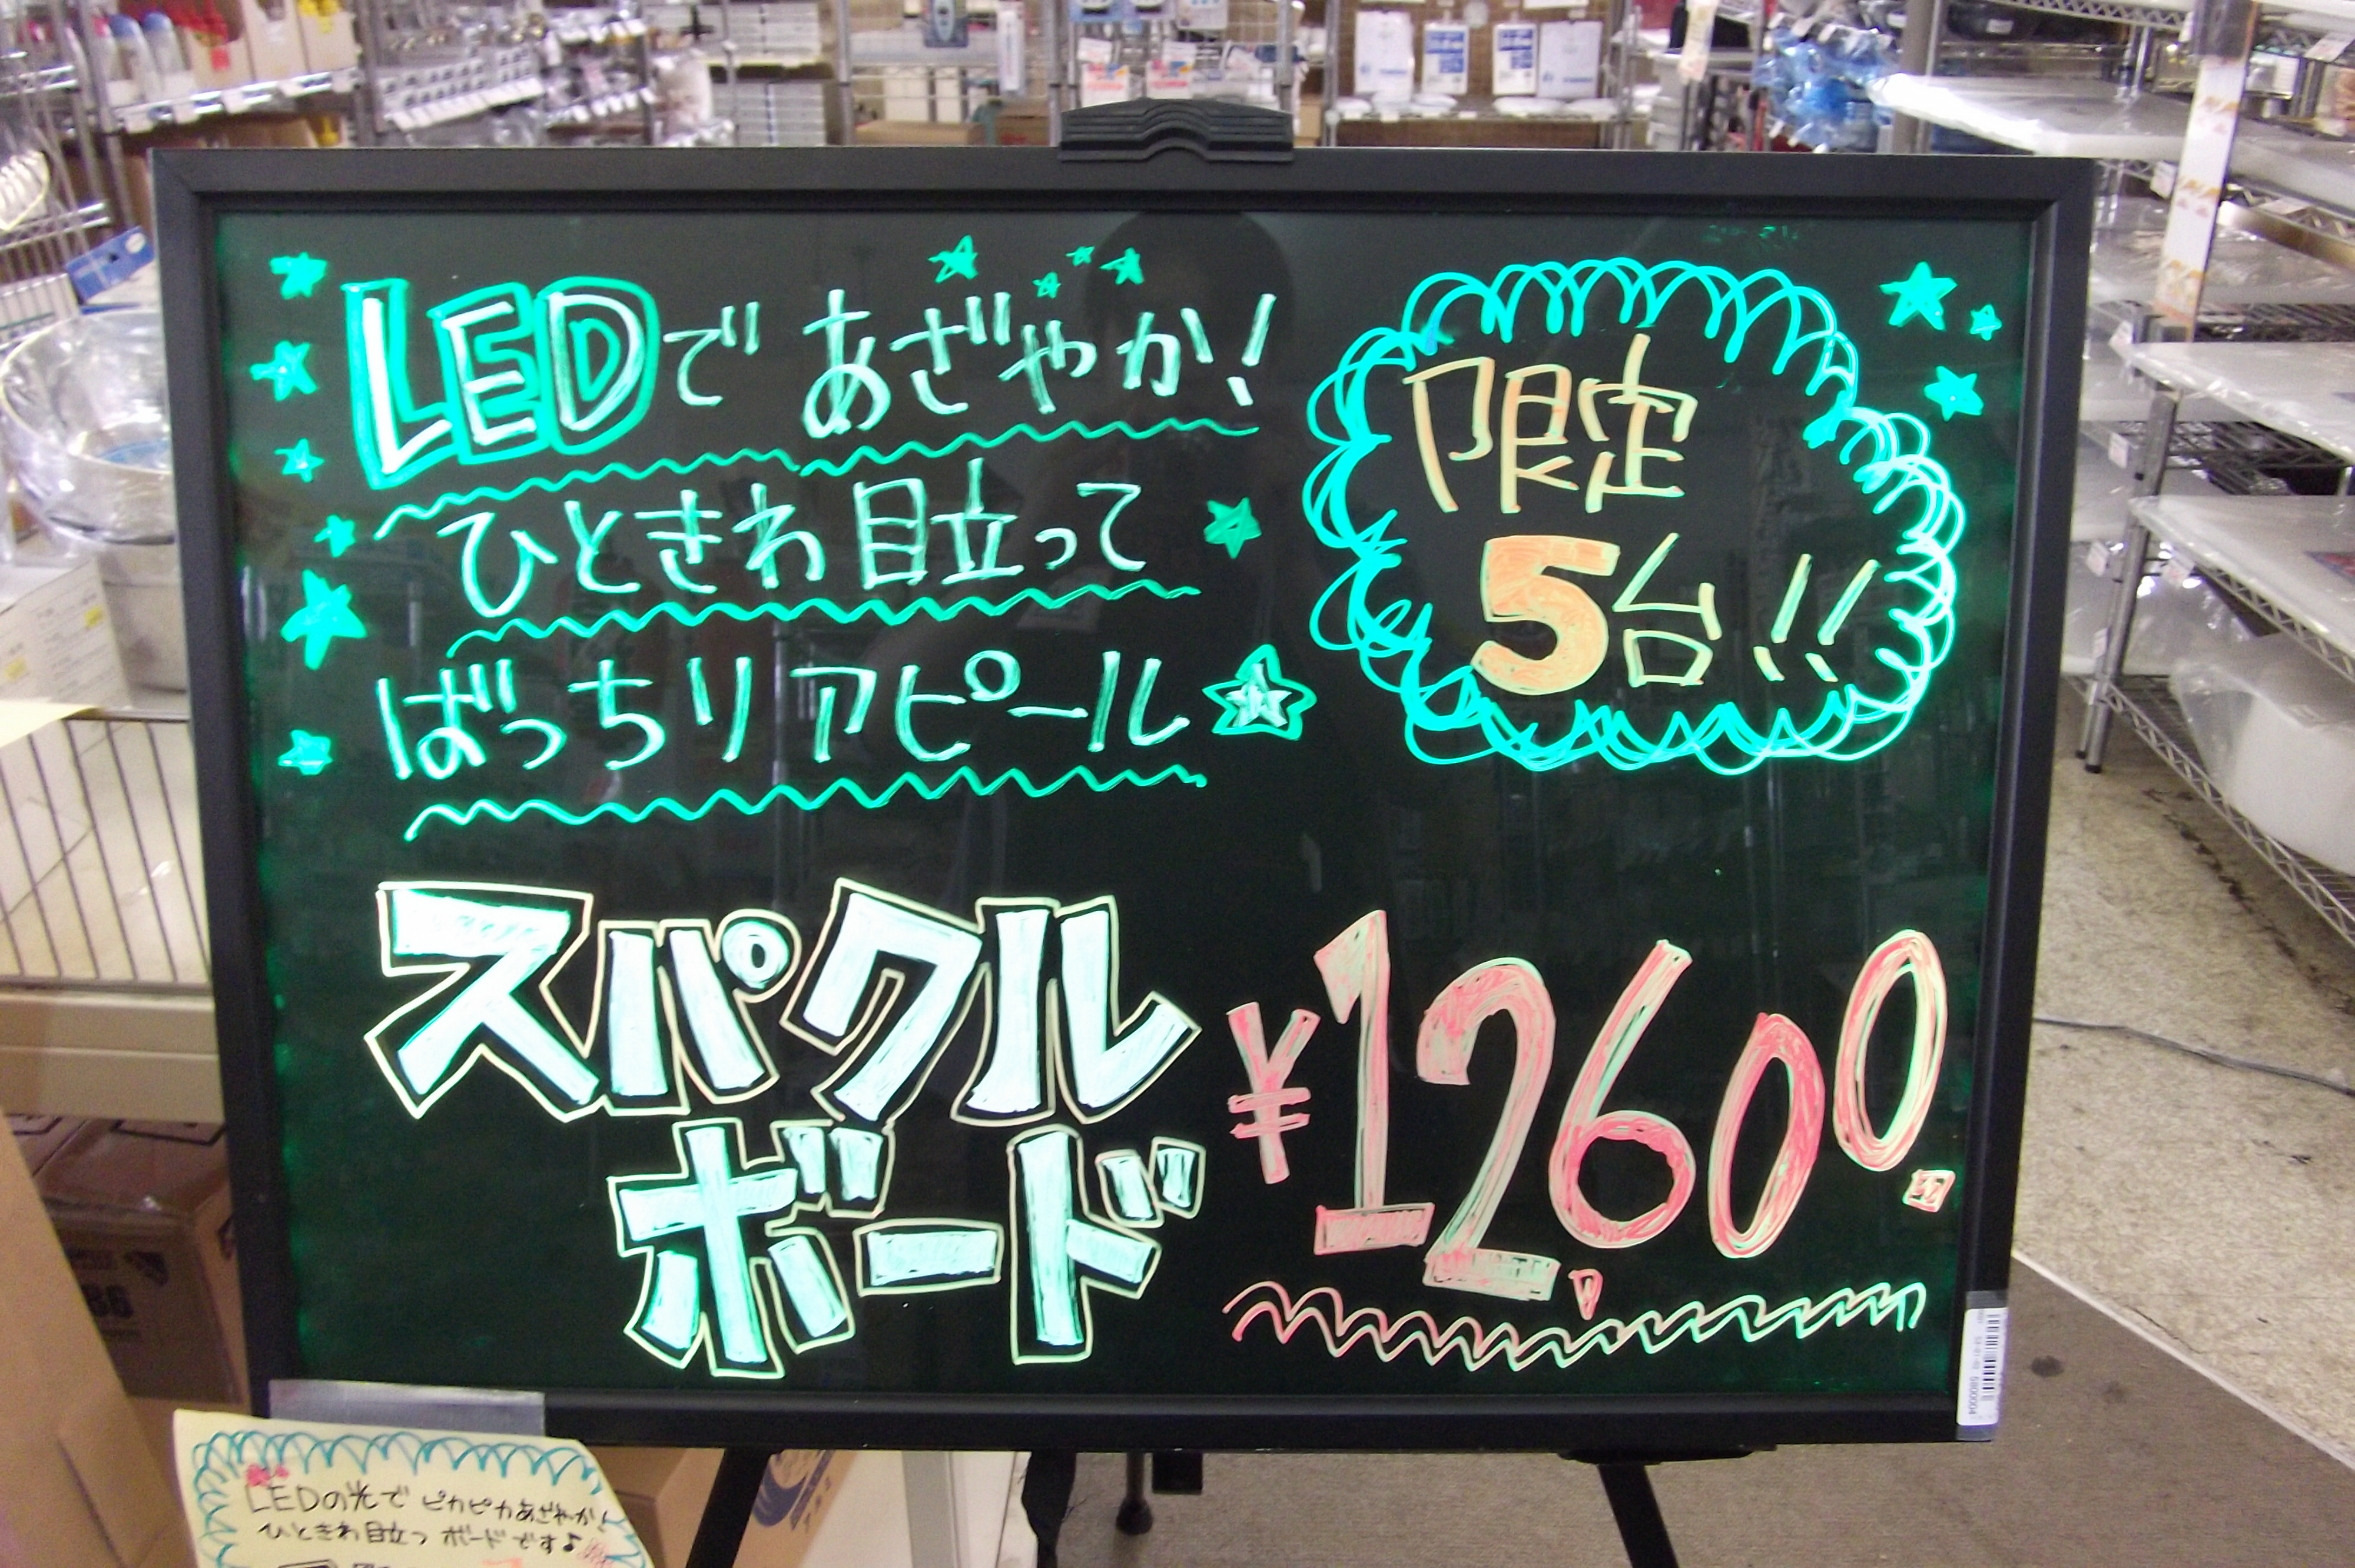 LEDで あざやか!
ひときわ 目立って
ばっちり アピール
限定
5台!!
スパクル
ボード
¥12600
LEDの光で ピカピカあざやか!
ひときわ目立つ ボードです♪